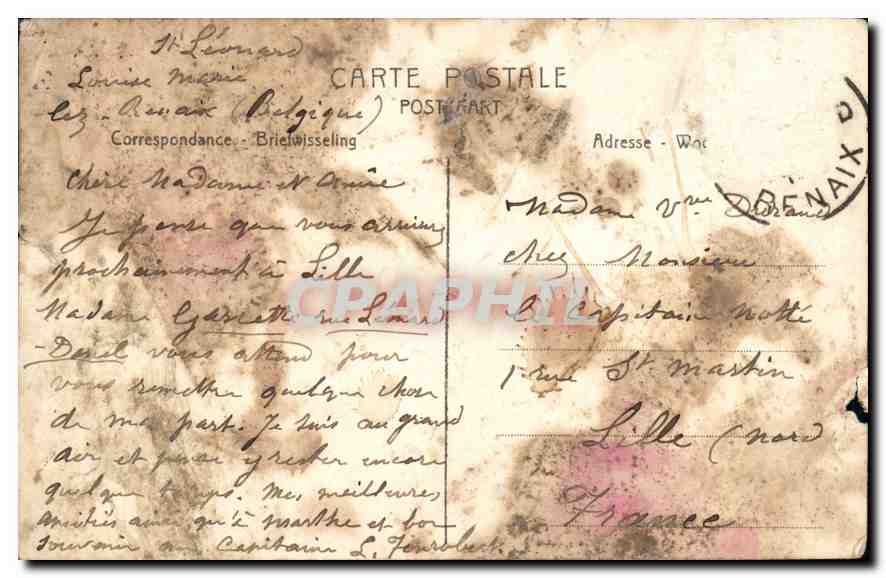 St Léonard
Louise Marie
lez-Renaix (Belgique)
CARTE POSTALE
POSTKART
Correspondance - Briefwisseling
Chère Madame et Amie
Je pense que vous arrivez
prochainement à Lille
Madame rue Léonard
Danel vous attend pour
vous remettre quelque chose
de ma part. Je suis au grand
air et pense y rester encore
quelque temps. Mes meilleures
amitiés ainsi qu'à Marthe et bon
souvenir au Capitaine L.
Adresse - Wo
RENAIX D
Madame Vve
chez Monsieur
le Capitaine Notté
1 rue St Martin
Lille (Nord
France
CPAPHIL